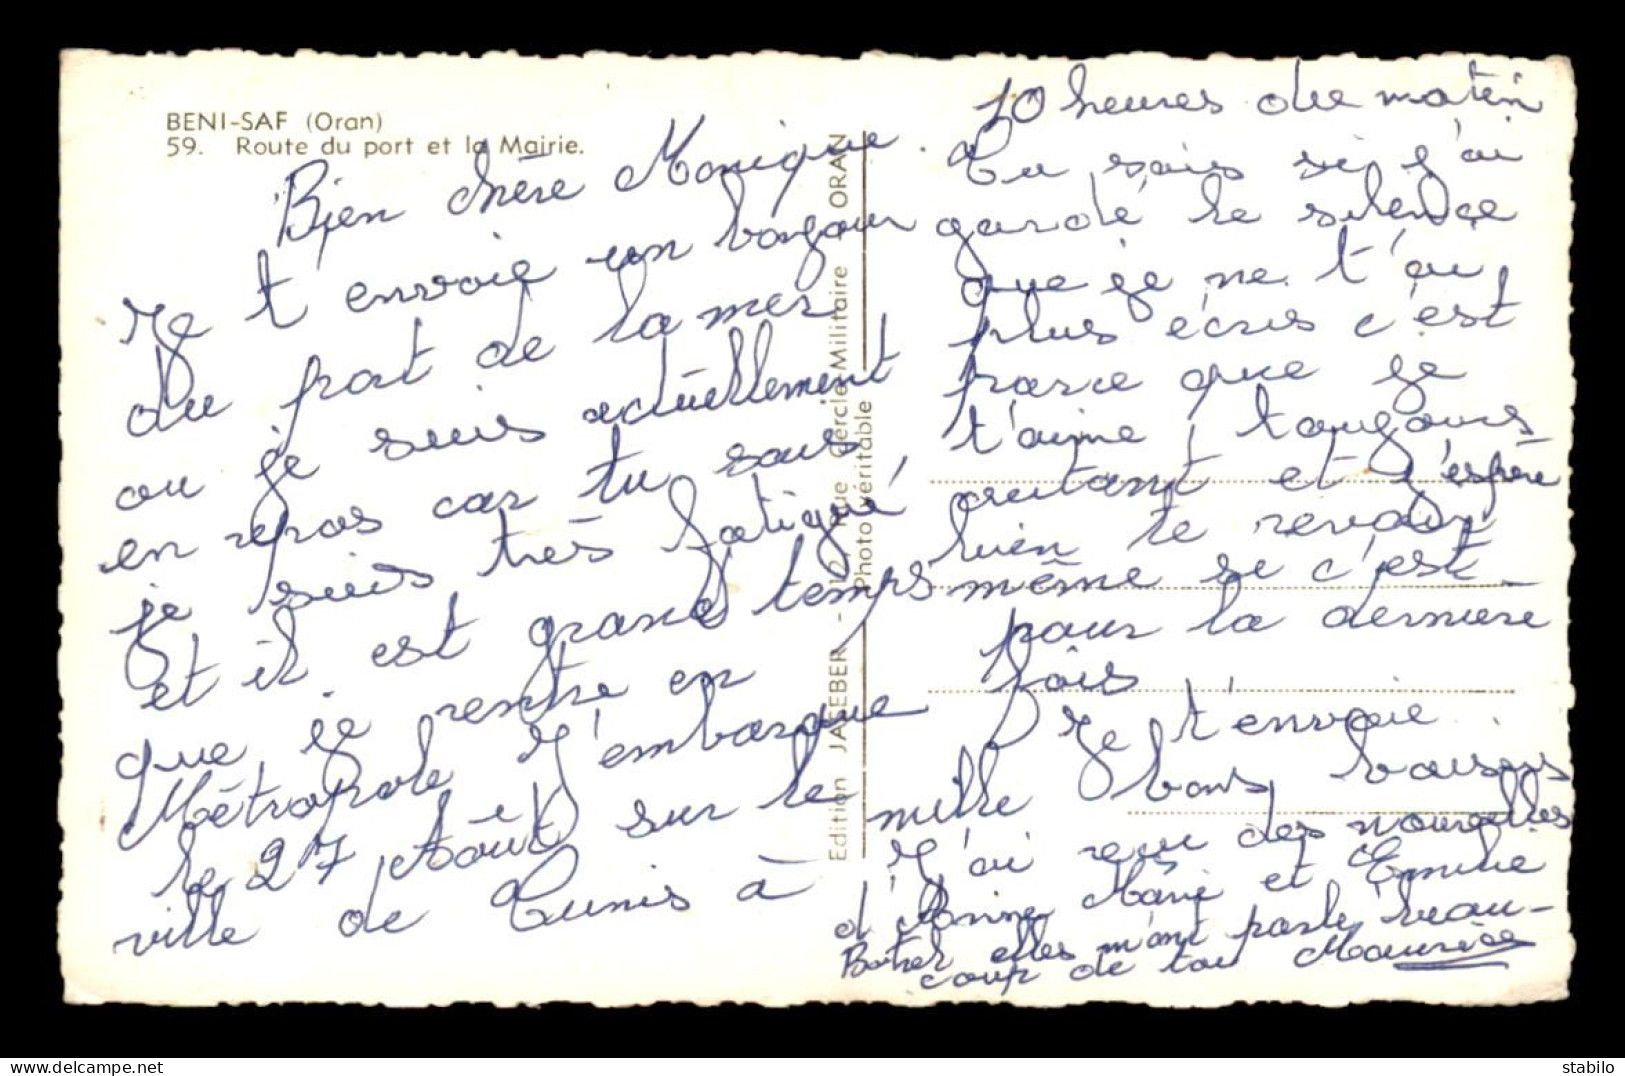 BENI-SAF (Oran)
59. Route du port et la Mairie.
Bien chère Monique.
Je t envoie un bonjour
du port de la mer
ou je suis actuellement
en repos car tu sais
je suis très fatigué,
et il est grand temps
que je rentre en
Métropole J'embarque
le 27 Août sur le
ville de Tunis à
10 heures du matin
Tu sais si j'ai
gardé le silence
que je ne t'ai
plus écris c'est
parce que je
t'aime, toujours
autant et j'espère
bien te revoir
même se c'est
pour la dernière
fois
Je t'envoie
mille bons baisers
J'ai reçu des nouvelles
d'Annine Marie et Emilie
elles m'ont parlé beau-
coup de toi Maurice
Edition JACEBER - 12, Rue Cercle Militaire ORAN
Photo véritable